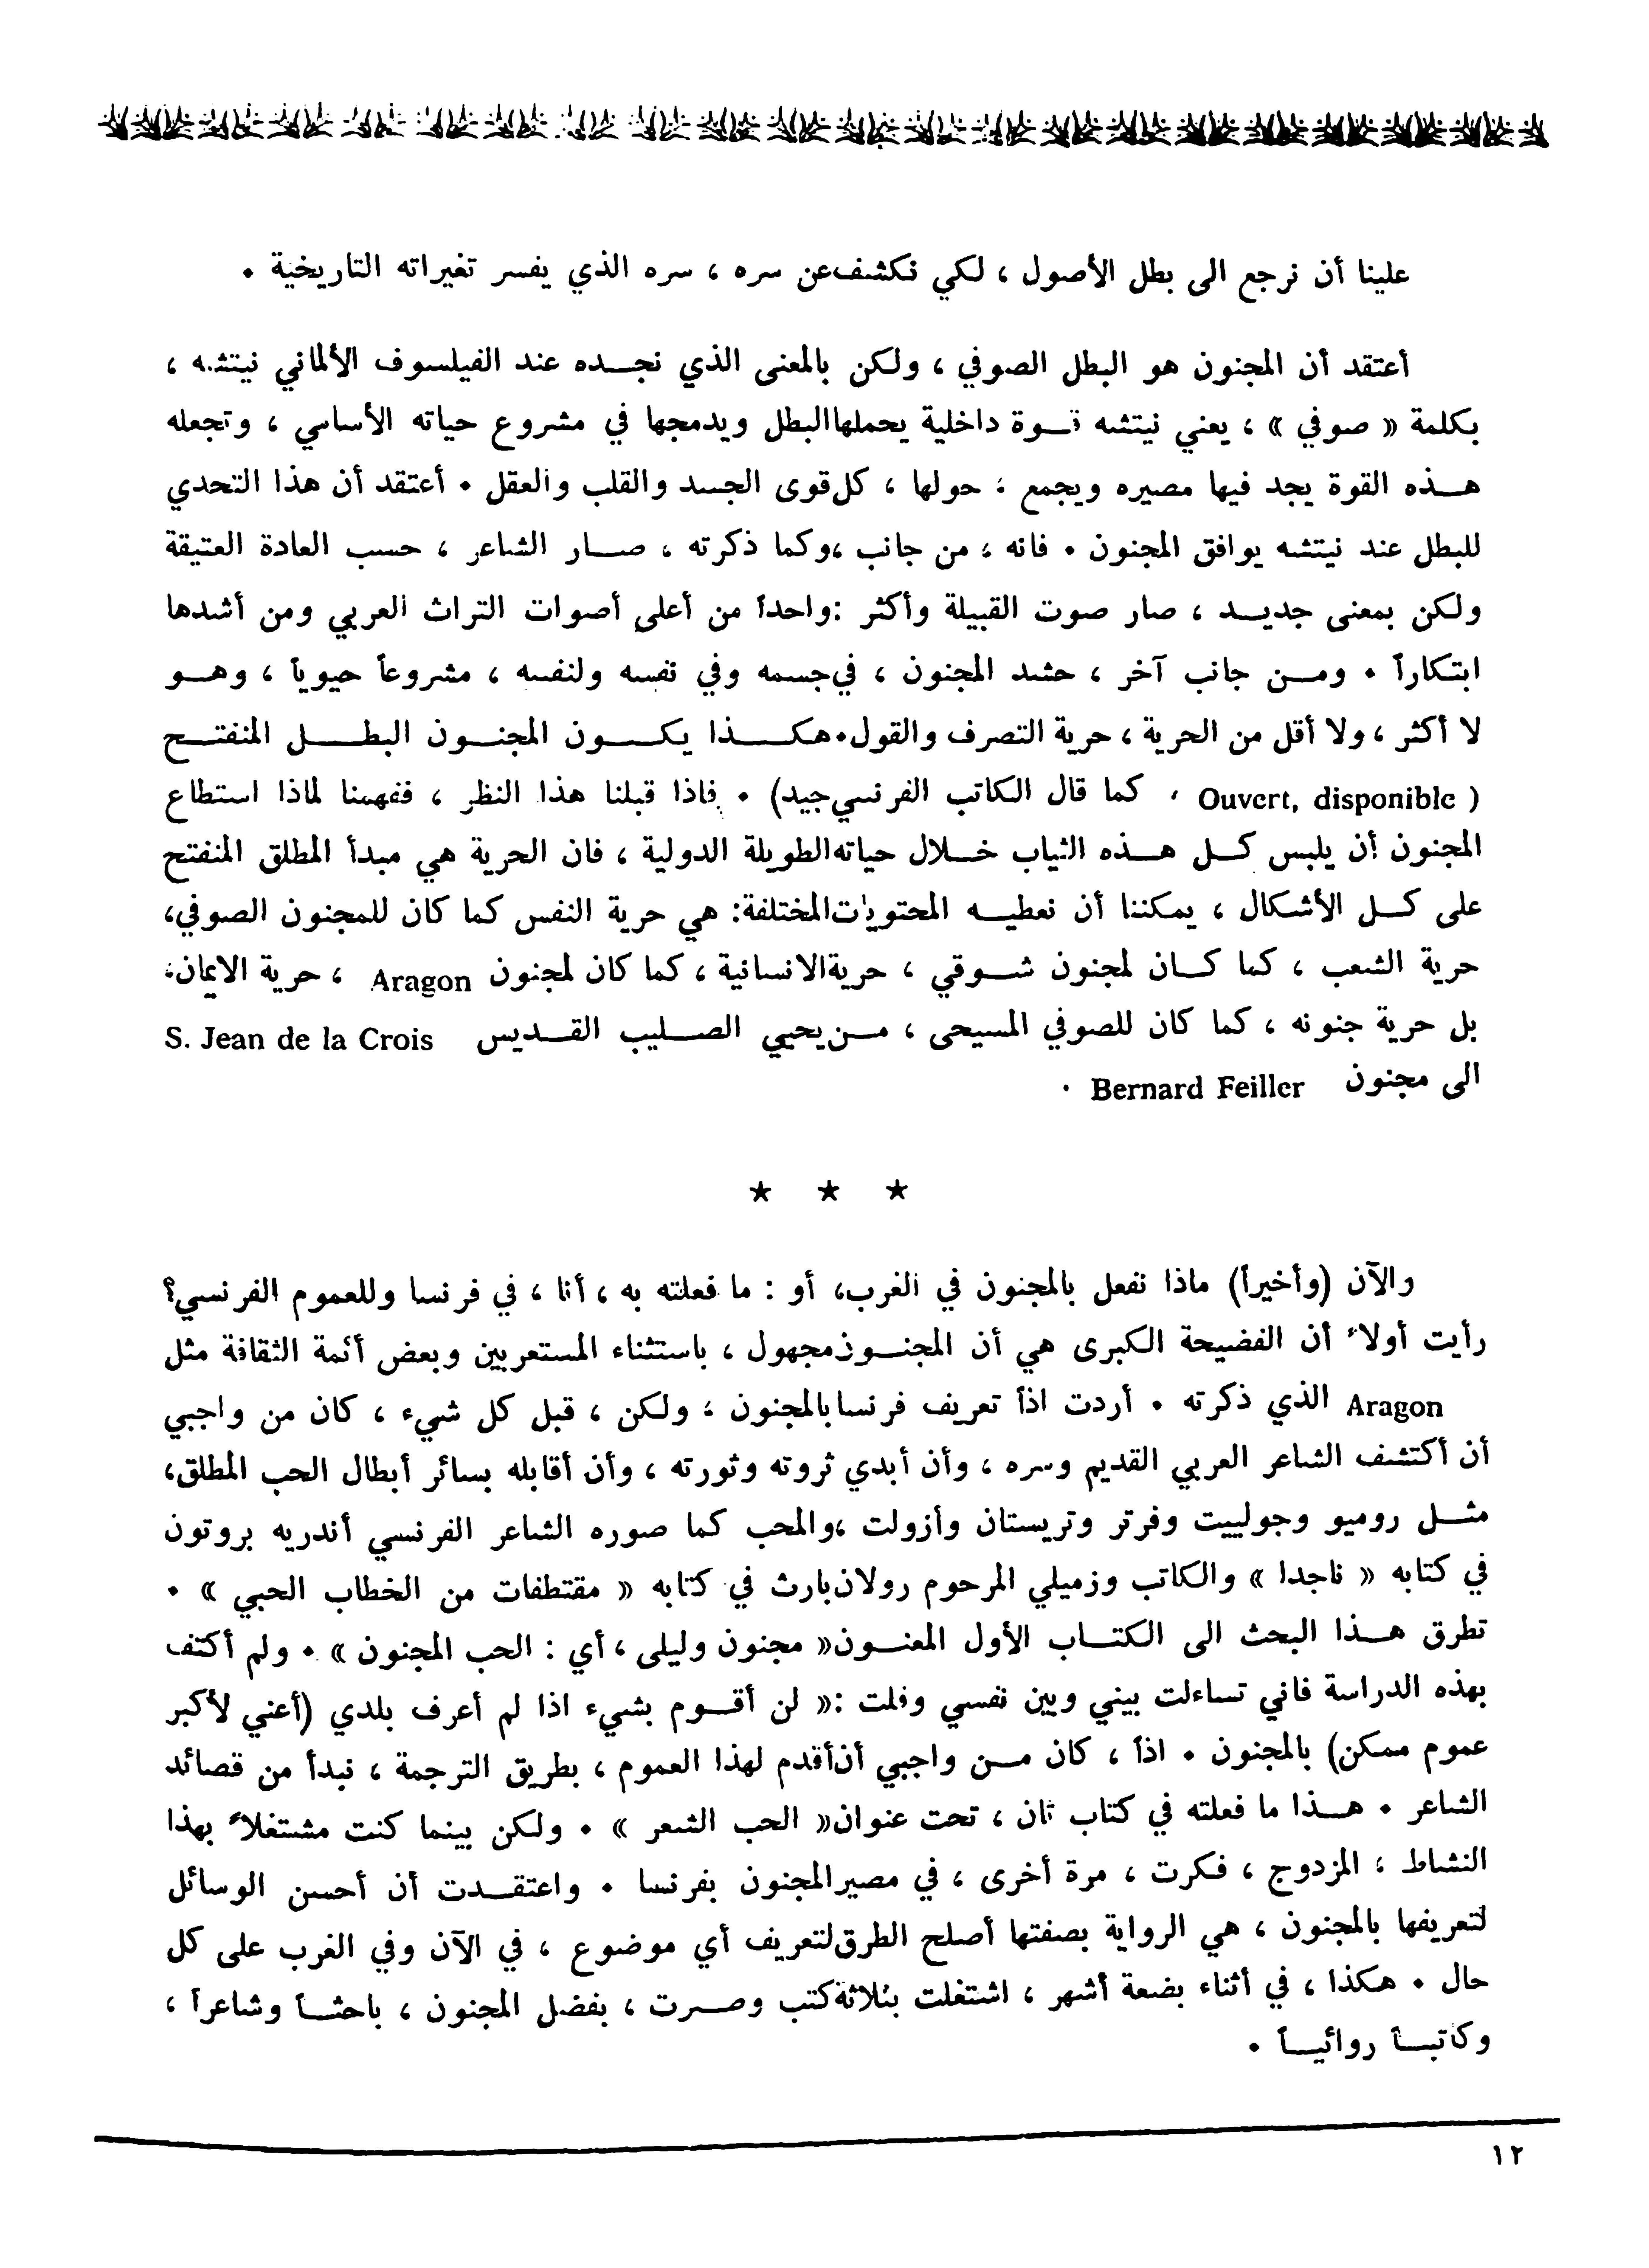 علينا أن نرجع الى بطل الأصول ، لكي نكشف عن سره ، سره الذي يفسر تغيراته التاريخية .
أعتقد أن المجنون هو البطل الصوفي ، ولكن بالمعنى الذي نجـده عند الفيلسوف الألماني نيتشه ،
بكلمة « صوفي » ، يعني نيتشه قـوة داخلية يحملها البطل ويدمجها في مشروع حياته الأساسي ، وتجعله
هـذه القوة يجد فيها مصيره ويجمع ، حولها ، كل قوى الجسد والقلب والعقل . أعتقد أن هذا التحدي
للبطل عند نيتشه يوافق المجنون . فانه ، من جانب ، وكما ذكرته ، صـار الشاعر ، حسب العادة العتيقة
ولكن بمعنى جديـد ، صار صوت القبيلة وأكثر : واحداً من أعلى أصوات التراث العربي ومن أشدها
ابتكاراً . ومـن جانب آخر ، حشد المجنون ، في جسمه وفي نفسه ولنفسه ، مشروعاً حيوياً ، وهـو
لا أكثر ، ولا أقل من الحرية ، حرية التصرف والقول . هكـذا يكـون المجنـون البطـل المنفتـح
( Ouvert, disponible ، كما قال الكاتب الفرنسي جيد) . فاذا قبلنا هذا النظر ، ففهمنا لماذا استطاع
المجنون أن يلبس كـل هـذه الثياب خـلال حياته الطويلة الدولية ، فان الحرية هي مبدأ المطلق المنفتح
على كـل الأشكال ، يمكننا أن نعطيـه المحتويات المختلفة: هي حرية النفس كما كان للمجنون الصوفي،
حرية الشعب ، كما كـان لمجنون شـوقي ، حرية الانسانية ، كما كان لمجنون Aragon ، حرية الايمان،
بل حرية جنونه ، كما كان للصوفي المسيحى ، مـن يحيي الصـليب القـديس S. Jean de la Crois
الى مجنون Bernard Feiller .
★ ★ ★
والآن (وأخيراً) ماذا نفعل بالمجنون في الغرب، أو : ما فعلته به ، أنا ، في فرنسا وللعموم الفرنسي؟
رأيت أولاً أن الفضيحة الكبرى هي أن المجنـون مجهول ، باستثناء المستعربين وبعض أئمة الثقافة مثل
Aragon الذي ذكرته . أردت اذاً تعريف فرنسا بالمجنون ، ولكن ، قبل كل شيء ، كان من واجبي
أن أكتشف الشاعر العربي القديم وسره ، وأن أبدي ثروته وثورته ، وأن أقابله بسائر أبطال الحب المطلق،
مثـل روميو وجولييت وفرتر وتريستان وأزولت ، والمحب كما صوره الشاعر الفرنسي أندريه بروتون
في كتابه « ناجدا » والكاتب وزميلي المرحوم رولان بارث في كتابه « مقتطفات من الخطاب الحبي » .
تطرق هـذا البحث الى الكتـاب الأول المعنـون « مجنون وليلى ، أي : الحب المجنون » . ولم أكتف
بهذه الدراسة فاني تساءلت بيني وبين نفسي وقلت : « لن أقـوم بشيء اذا لم أعرف بلدي (أعني لأكبر
عموم ممكن) بالمجنون . اذاً ، كان مـن واجبي أن أقدم لهذا العموم ، بطريق الترجمة ، نبدأ من قصائد
الشاعر . هـذا ما فعلته في كتاب ثان ، تحت عنوان « الحب الشعر » . ولكن بينما كنت مشتغلاً بهذا
النشاط ، المزدوج ، فكرت ، مرة أخرى ، في مصير المجنون بفرنسا . واعتقـدت أن أحسن الوسائل
لتعريفها بالمجنون ، هي الرواية بصفتها أصلح الطرق لتعريف أي موضوع ، في الآن وفي الغرب على كل
حال . هكذا ، في أثناء بضعة أشهر ، اشتغلت بثلاثة كتب وصـرت ، بفضل المجنون ، باحثـاً وشاعراً ،
وكاتبـاً روائيـاً .
١٢